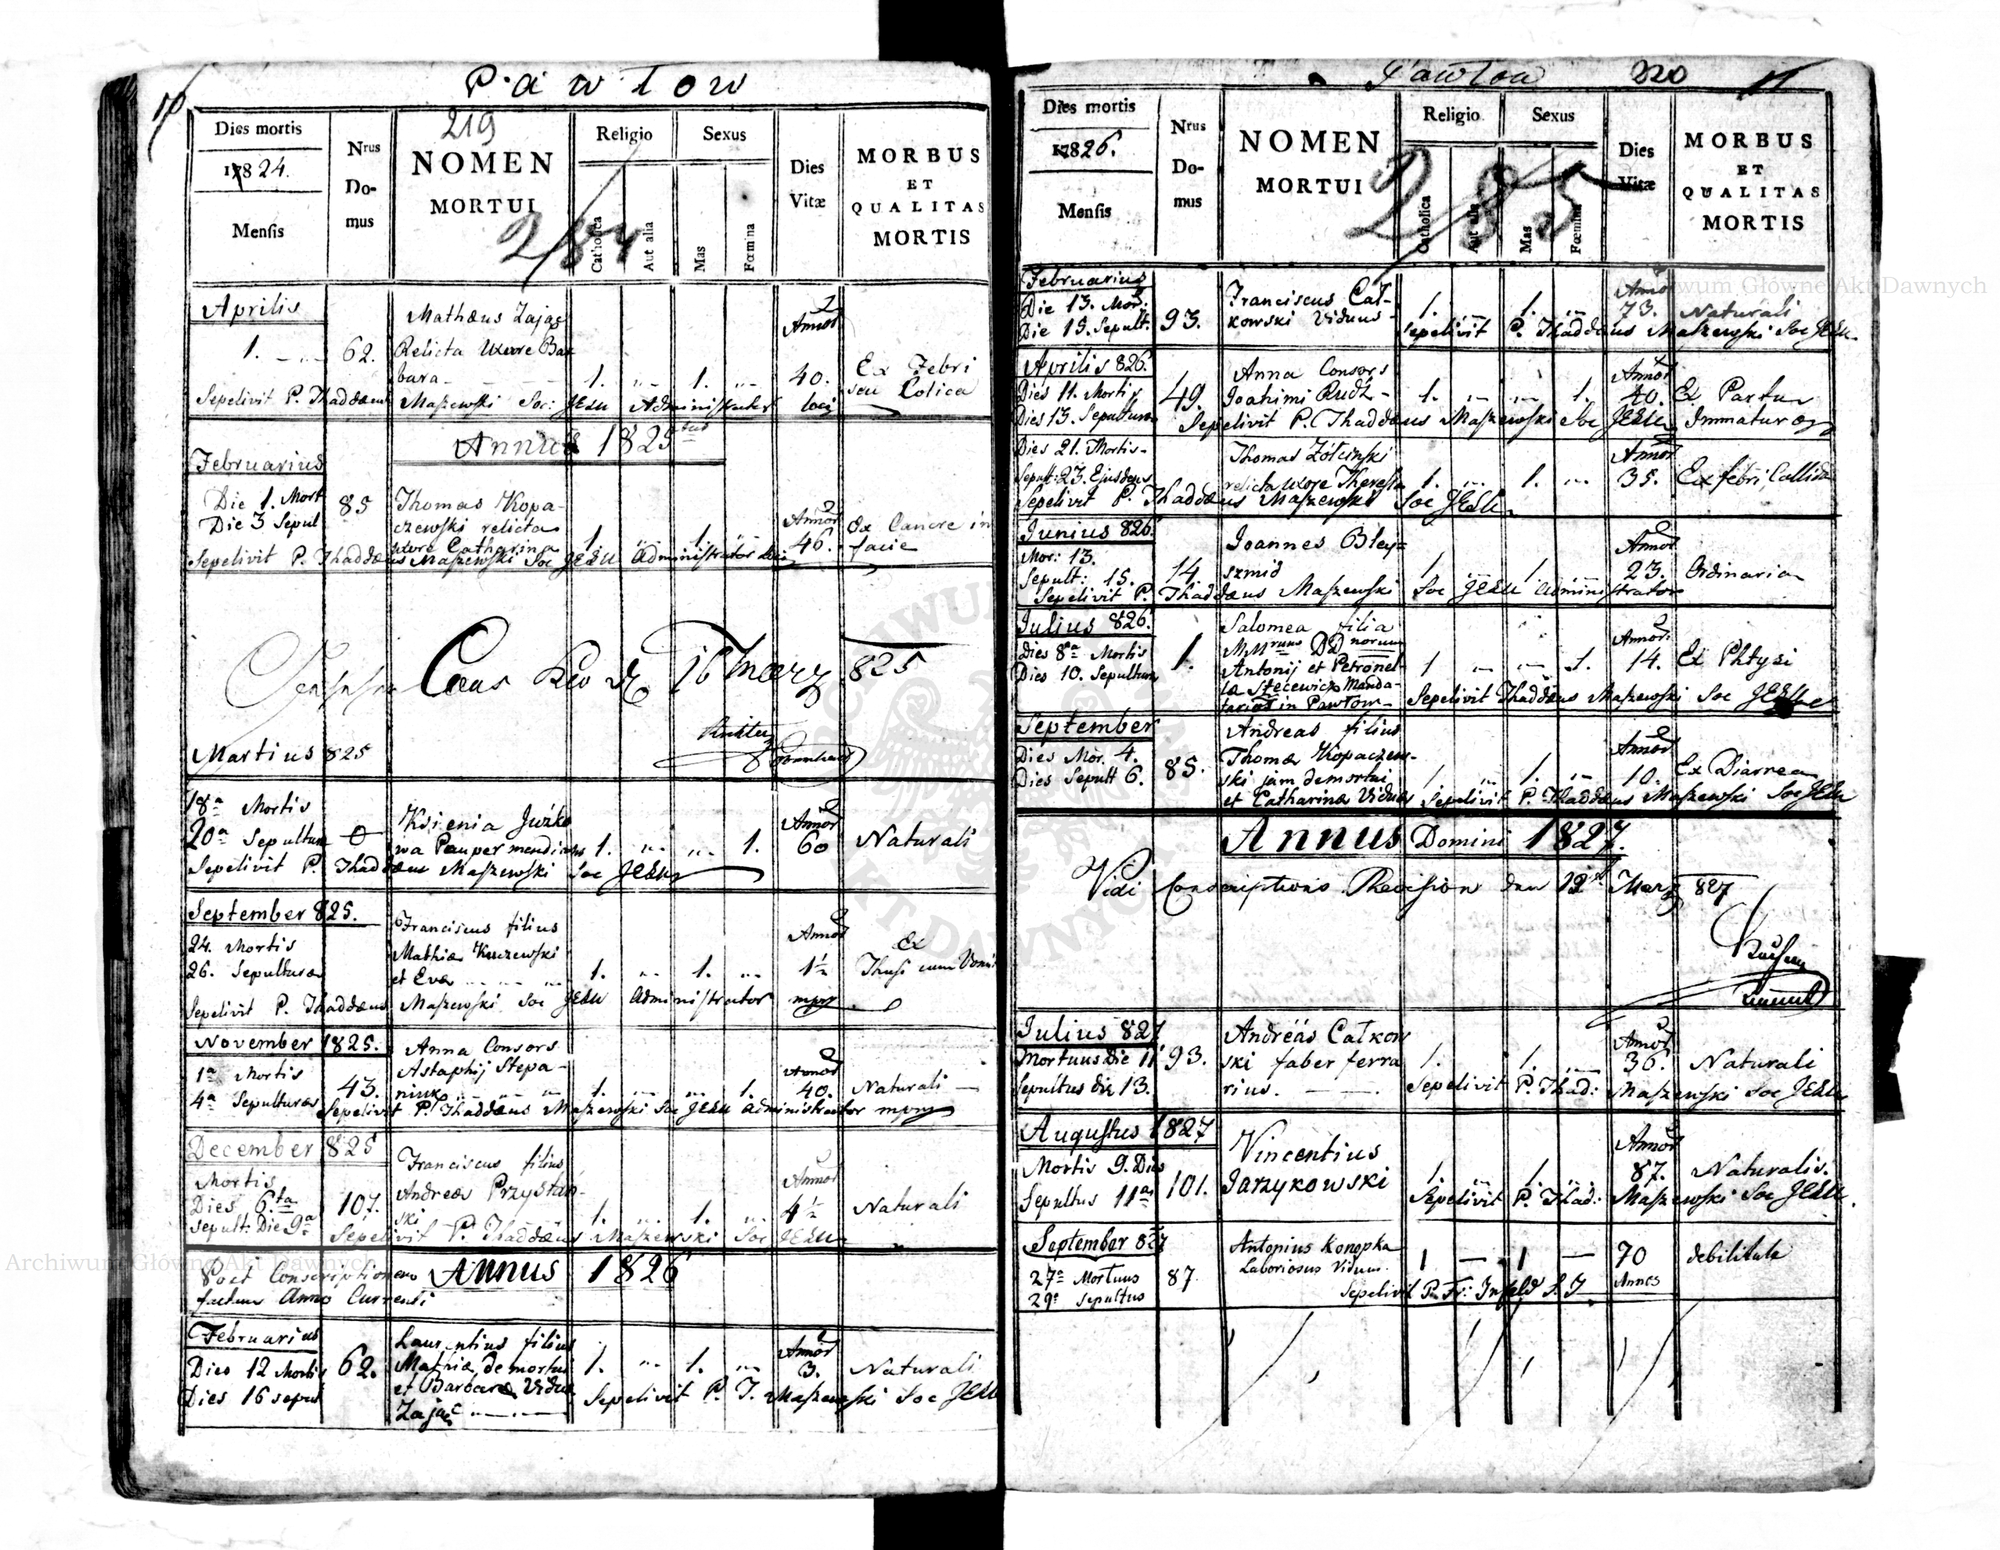 Pawłow
219
Dies mortis
1824.
Mensis
Nrus
Do-
mus
NOMEN
MORTUI
284
Religio
Catholica
Aut alia
Sexus
Mas
Fœmina
Dies
Vitæ
MORBUS
ET
QUALITAS
MORTIS
Aprilis
1. 62. Mathæus Zając
Relicta Uxore Bar
bara 1. 1. Annor 40. Ex Febri
seu Colica
Sepelivit P. Thaddæus Maszewski Soc: JESU Administrator loci
Annus 1825tus
Februarius
Die 1. Mort 85 Thomas Kopa-
Die 3 Sepul czewski relicta
uxore Catharina 1. 1. Annor 46. Ex Cancre in
facie
Sepelivit P. Thaddæus Maszewski Soc JESU Administrator loci
16 Marz 825
Martius 825
18a Mortis
20a Sepulturæ 0 Ksienia Juzko
wa Pauper mendicans 1. 1. Annor 60 Naturali
Sepelivit P. Thaddæus Maszewski Soc JESU
September 825.
24. Mortis
26. Sepulturæ
Franciscus filius
Mathiæ Kurzewski
et Eva 1. 1. Annor 1½ Ex
Thusi cum Vomit
Sepelivit P. Thaddæus Maszewski Soc JESU Administrator mpr
November 1825.
1a Mortis
4a Sepulturæ 43. Anna Consors
Astaphij Stepa-
niuk 1. 1. Annor 40. Naturali
Sepelivit P. Thaddæus Maszewski Soc JESU Administrator mpr
December 825
Mortis
Dies 6.ta
Sepult: Die 9a 107. Franciscus filius
Andreæ Przystań-
ski 1. 1. Annor 4½ Naturali
Sepelivit P. Thaddæus Maszewski Soc JESU
Post Conscriptionem Annus 1826
factum Anno Currenti
Februarius
Dies 12 Mortis
Dies 16 sepul 62. Laurentius filius
Mathiæ demortui
et Barbaræ Viduæ
Zając 1. 1. Annor 3. Naturali
Sepelivit P. T. Maszewski Soc JESU
Pawłow
220
Dies mortis
1826.
Mensis
Nrus
Do-
mus
NOMEN
MORTUI
285
Religio
Catholica
Aut alia
Sexus
Mas
Fœmina
Dies
Vitæ
MORBUS
ET
QUALITAS
MORTIS
Februarius
Die 13. Mor.
Die 15. Sepult. 93. Franciscus Cał-
kowski Viduus 1. 1. Annor 73. Naturali
Sepelivit P. Thaddæus Maszewski Soc JESU
Aprilis 826.
Dies 11. Mortis
Dies 13. Sepulturæ 49. Anna Consors
Joahimi Rudz- 1. 1. Annor 40. Ex Partu
Immaturo
Sepelivit P. Thaddæus Maszewski Soc JESU
Dies 21. Mortis
Sepult: 23. Ejusdem Thomas Żołcinski
relicta Uxore Theresia 1. 1. Annor 35. Ex febri Callida
Sepelivit P. Thaddæus Maszewski Soc JESU
Junius 826.
Mor: 13.
Sepult: 15. 14. Joannes Bley-
szmid 1. 1. Annor 23. Ordinaria
Sepelivit P. Thaddæus Maszewski Soc JESU Administrator
Julius 826.
Dies 8a Mortis
Dies 10. Sepulturæ 1. Salomea filia
MMrum DDnorum
Antonij et Petronel-
læ Stecewicz Manda-
tarios in Pawłow 1 1. Annor. 14. Ex Phtysi
Sepelivit Thaddæus Maszewski Soc JESU
September
Dies Mor. 4.
Dies Sepult 6. 85. Andreas filius
Thomæ Kopaczew-
ski jam demortui
et Catharinæ Viduæ 1. 1. Annor 10. Ex Diarrea
Sepelivit P. Thaddæus Maszewski Soc JESU
Annus Domini 1827.
Vidi Conscriptions Revision den 12t Marz 827
Julius 827
Mortuus Die 11
Sepultus die 13. 93. Andréas Całkow
ski faber ferra
rius. 1. 1. Annor 36. Naturali
Sepelivit P. Thad: Maszewski Soc JESU
Augustus 1827
Mortis 9. Dies
Sepultus 11a 101. Vincentius
Jarzykowski 1. 1. Annor 87. Naturalis.
Sepelivit P. Thad: Maszewski Soc JESU.
September 827
27a Mortuus
29a Sepultus 87. Antonius Konopka
Laboriosus Viduus. 1 1 70 Annos debilitate
Sepelivit P. Fr: Infeld S. J
Archiwum Główne Akt Dawnych
Archiwum Główne Akt Dawnych